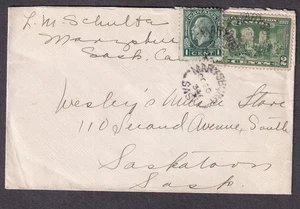 L. M. Schulte
Marysburg
Sask. Can
CANADA
1 CENT 1
2 CENTS 2
MARYSBURG
SASK
Wesley's Music Store
110 Second Avenue, South
Saskatoon
Sask.